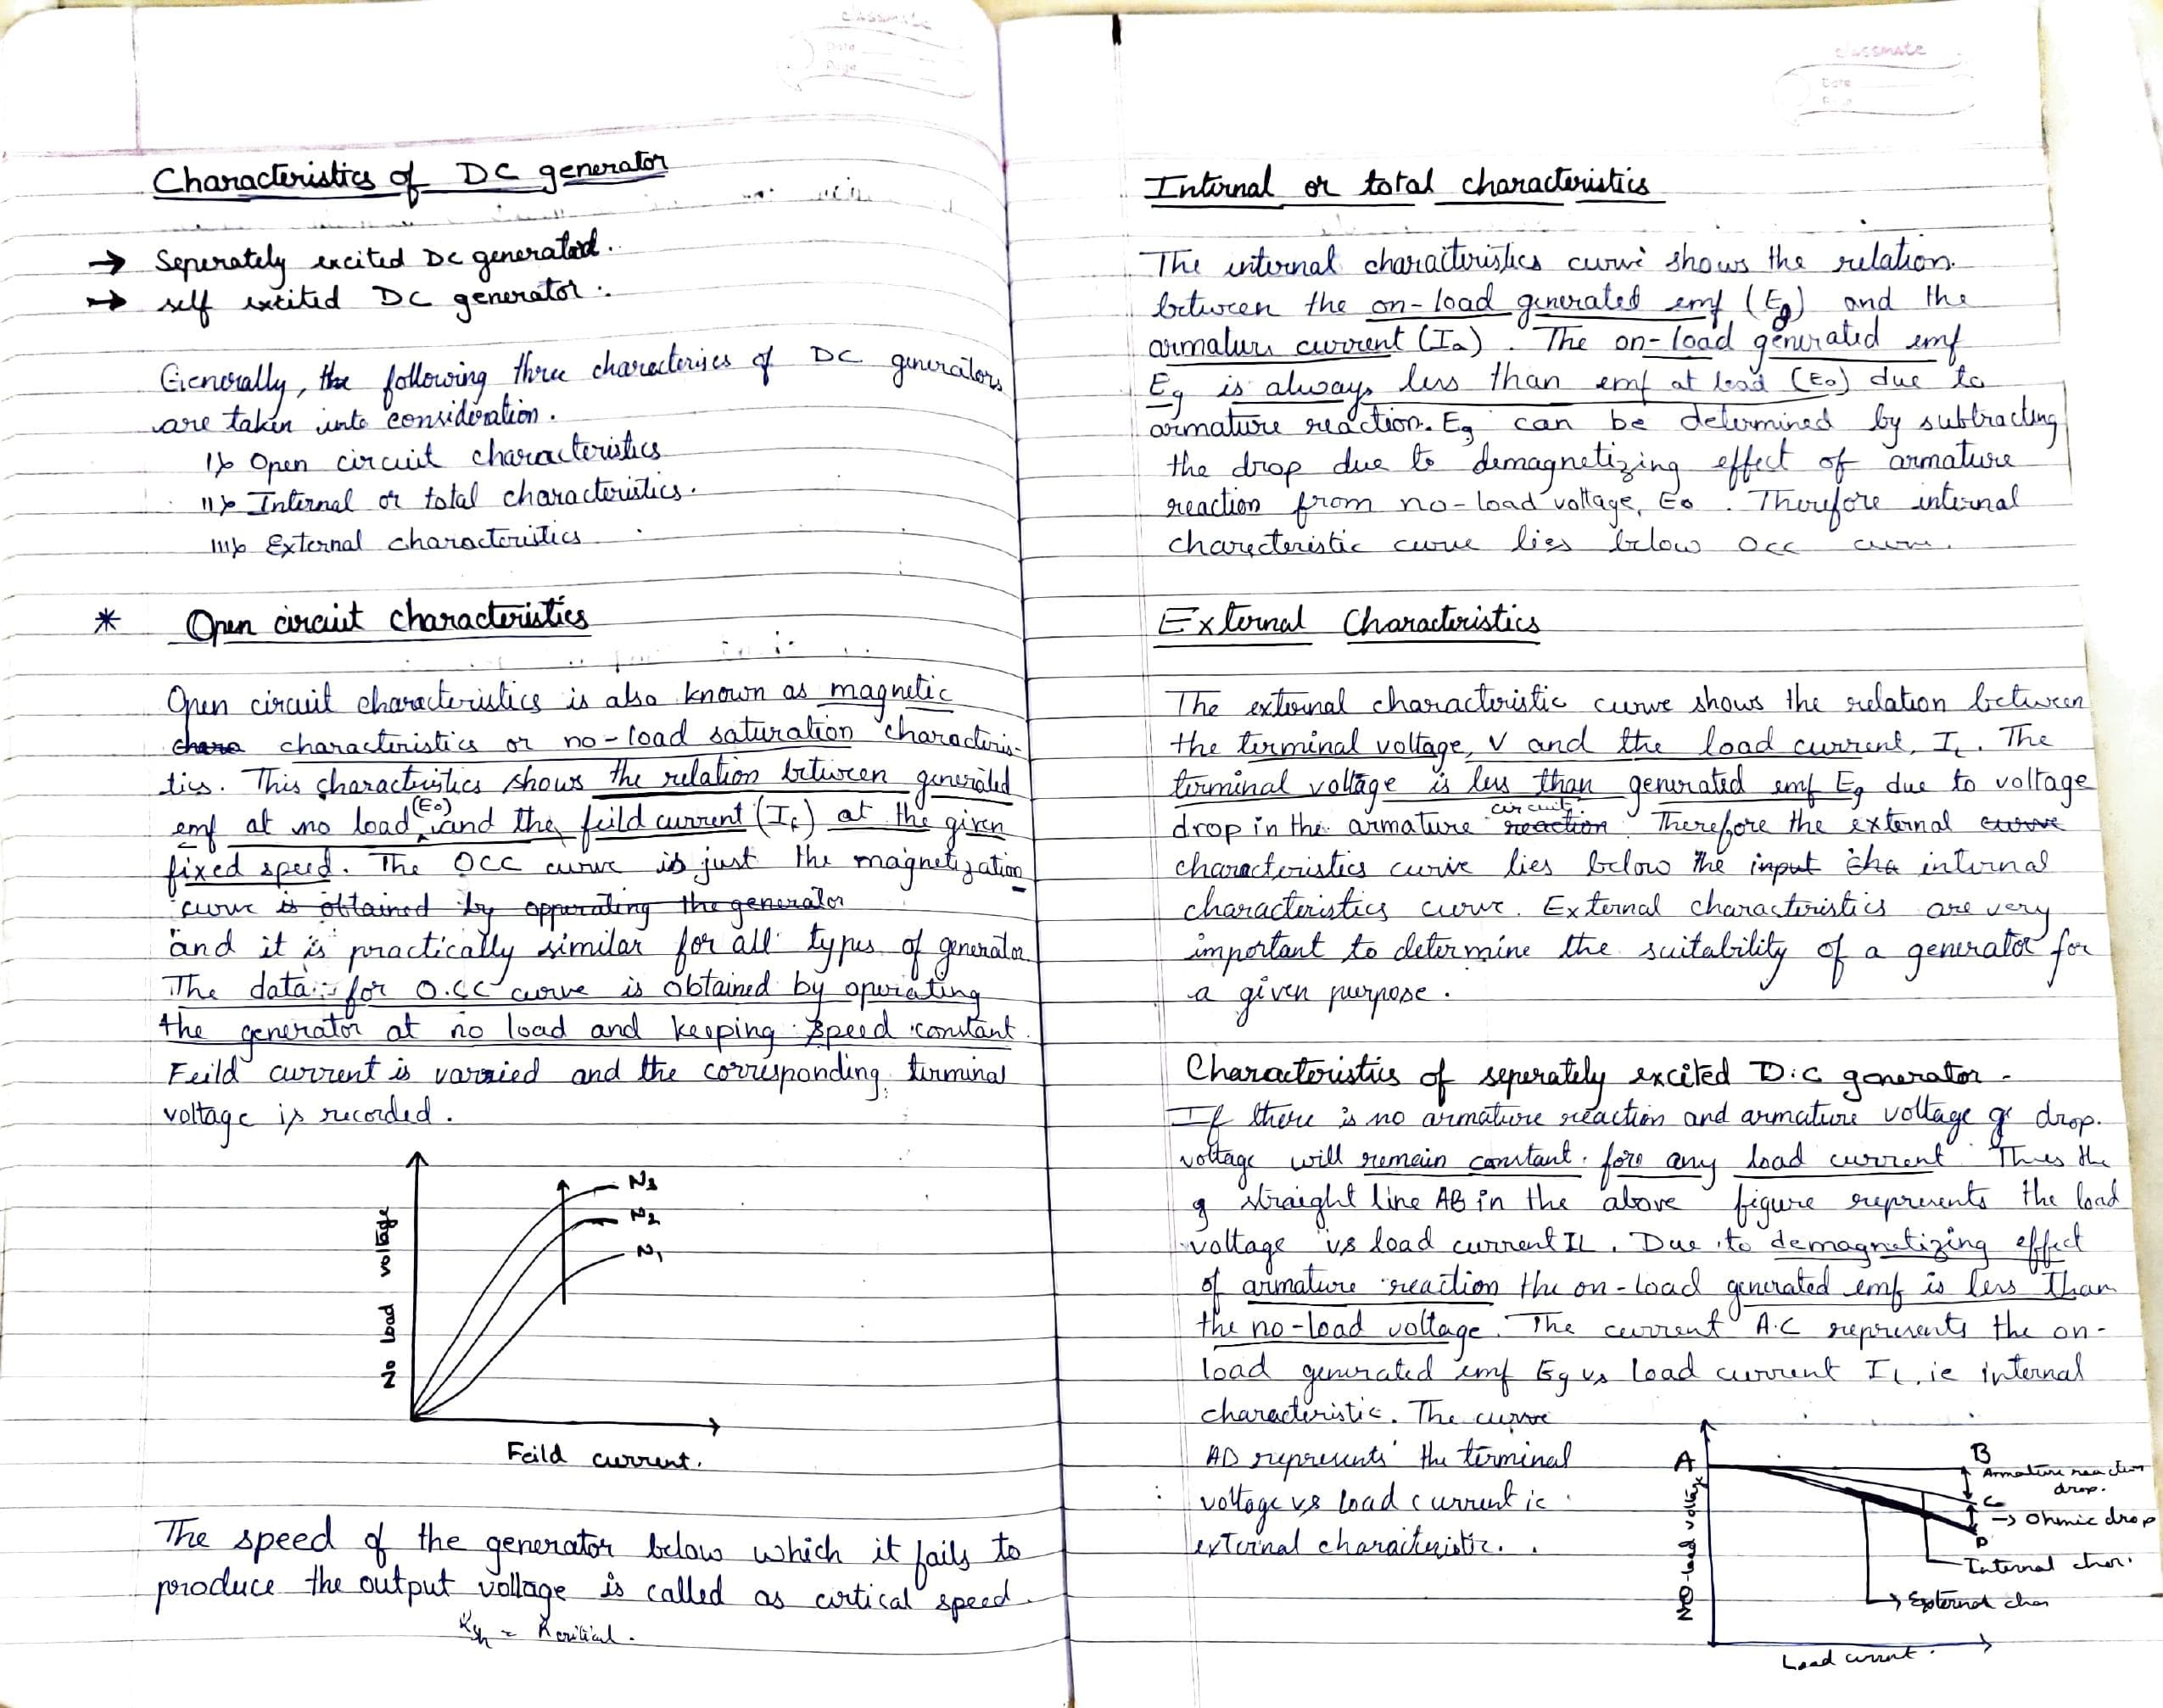 classmate
Date
Page
Characteristics of DC generator
→ Seperately excited DC generated.
→ self excited DC generator.
Generally, the following three characterises of DC generators
are taken into consideration.
I) Open circuit characteristics
II) Internal or total characteristics.
III) External characteristics
* Open circuit characteristics
Open circuit characteristics is also known as magnetic
chara characteristics or no-load saturation characteris-
tics. This characteristics shows the relation between generated
(E0)
emf at no load, and the feild current (If) at the given
fixed speed. The OCC curve is just the magnetization
curve is obtained by opperating the generator
and it is practically similar for all types of generator
The data for O.CC curve is obtained by operating
the generator at no load and keeping speed constant.
Feild current is varried and the corresponding terminal
voltage is recorded.
N3
N2
N1
No load voltage
Feild current.
The speed of the generator below which it fails to
produce the output voltage is called as cirtical speed.
Rsh = Rcritical.
classmate
Date
Page
Internal or total characteristics
The internal characteristics curve shows the relation
between the on-load generated emf (Eg) and the
armature current (Ia). The on-load generated emf
Eg is always less than emf at load (E0) due to
armature reaction. Eg can be determined by subtracting
the drop due to demagnetizing effect of armature
reaction from no-load voltage, E0. Therefore internal
charecteristic curve lies below OCC curve.
External Characteristics
The external characteristic curve shows the relation between
the terminal voltage, V and the load current, IL. The
terminal voltage is less than generated emf Eg due to voltage
circuit
drop in the armature reaction. Therefore the external curve
characteristics curve lies below the input cha internal
characteristics curve. External characteristics are very
important to determine the suitability of a generator for
a given purpose.
Characteristics of seperately excited D.C generator.
If there is no armature reaction and armature voltage drop.
voltage will remain constant. fore any load current. Thus the
straight line AB in the above figure represents the load
voltage vs load current IL. Due to demagnetizing effect
of armature reaction the on-load generated emf is less than
the no-load voltage. The current A.C represents the on-
load generated emf Eg vs Load current IL, ie internal
characteristic. The curve
AD represents the terminal
voltage vs load current ie
external characteristic.
A
B
Armature reaction
drop.
C
→ Ohmic drop
D
Internal char.
External char
NO-load voltage
Load current.